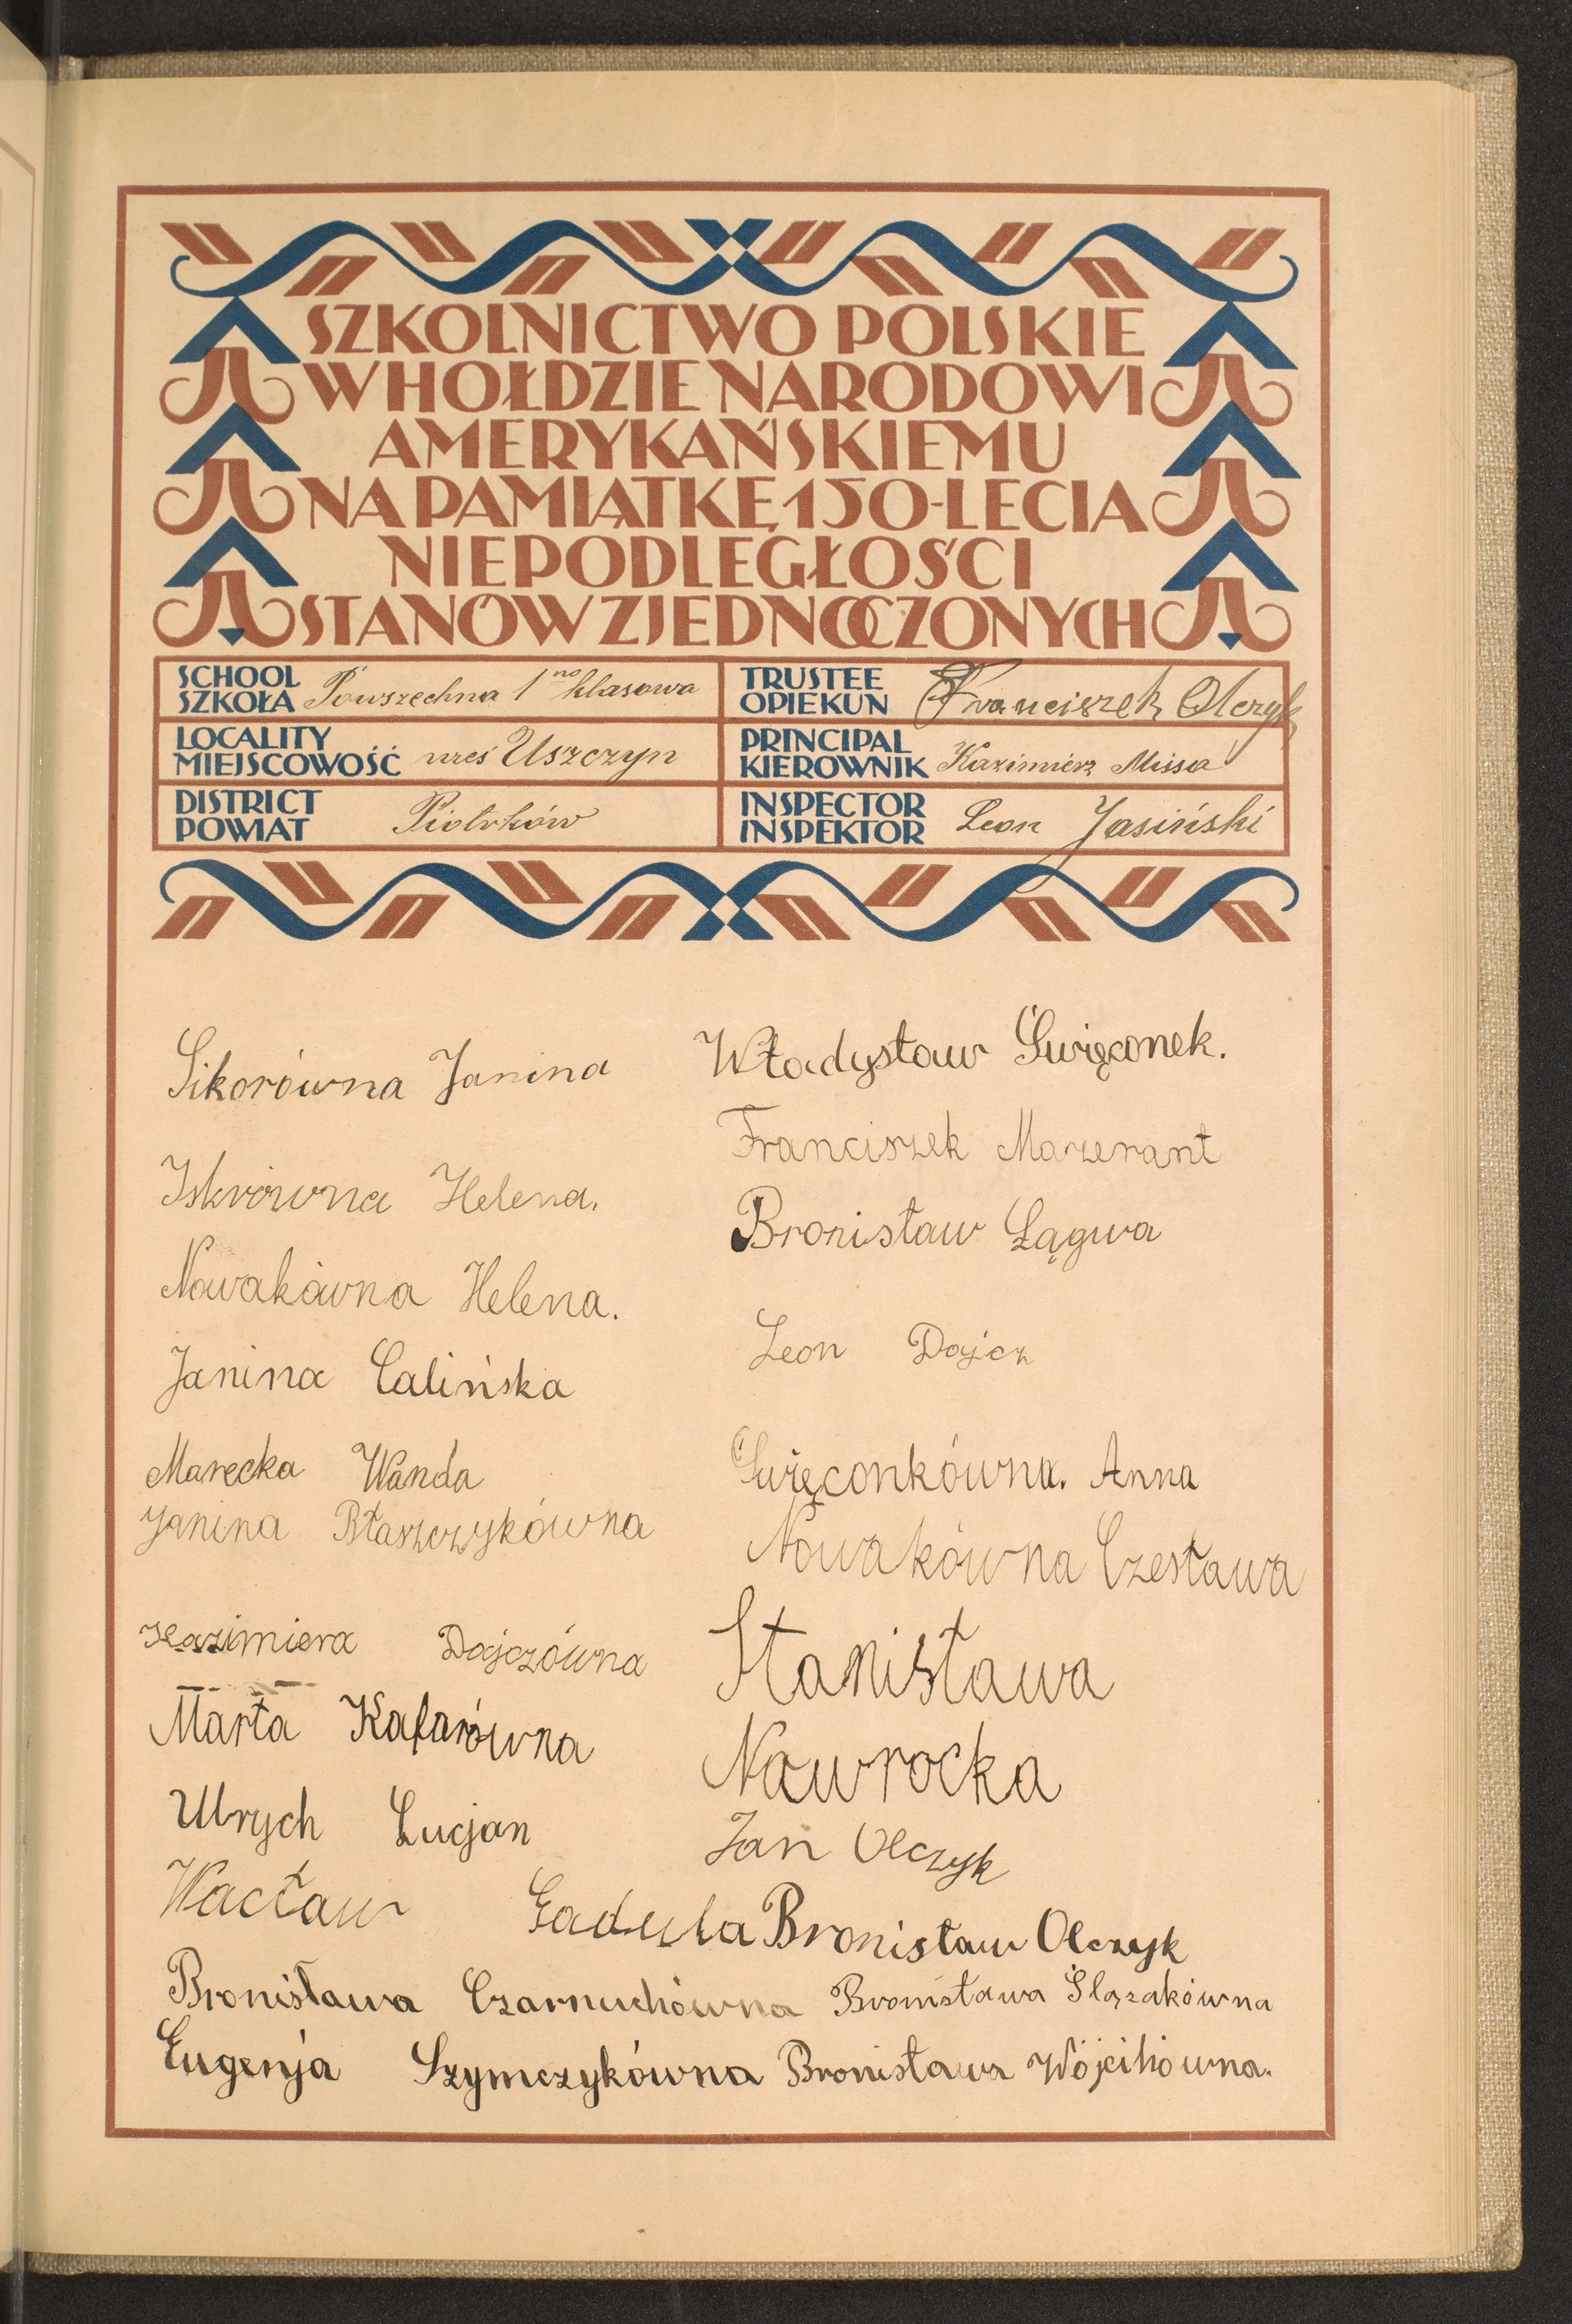 SZKOLNICTWO POLSKIE
W HOŁDZIE NARODOWI
AMERYKAŃSKIEMU
NA PAMIĄTKĘ 150-LECIA
NIEPODLEGŁOŚCI
STANÓW ZJEDNOCZONYCH
SCHOOL
SZKOŁA Powszechna 1 no klasowa
LOCALITY
MIEJSCOWOŚĆ wieś Uszczyn
DISTRICT
POWIAT Piotrków
TRUSTEE
OPIEKUN Franciszek Olczyk
PRINCIPAL
KIEROWNIK Kazimierz Missa
INSPECTOR
INSPEKTOR Leon Jasiński
Sikorówna Janina
Iskrówna Helena.
Nowakówna Helena.
Janina Calińska
Marecka Wanda
Janina Błaszczykówna
Kazimiera Dajczówna
Marta Kafarówna
Ulrych Lucjan
Wacław Gadula
Bronisława Czarnuchówna
Eugenja Szymczykówna
Władysław Święconek.
Franciszek Mazerant
Bronisław Łągwa
Leon Dajcz
Święconkówna. Anna
Nowakówna Czesława
Stanisława
Nawrocka
Jan Olczyk
Bronisław Olczyk
Bronisława Ślązakówna
Bronisława Wójcihówna.